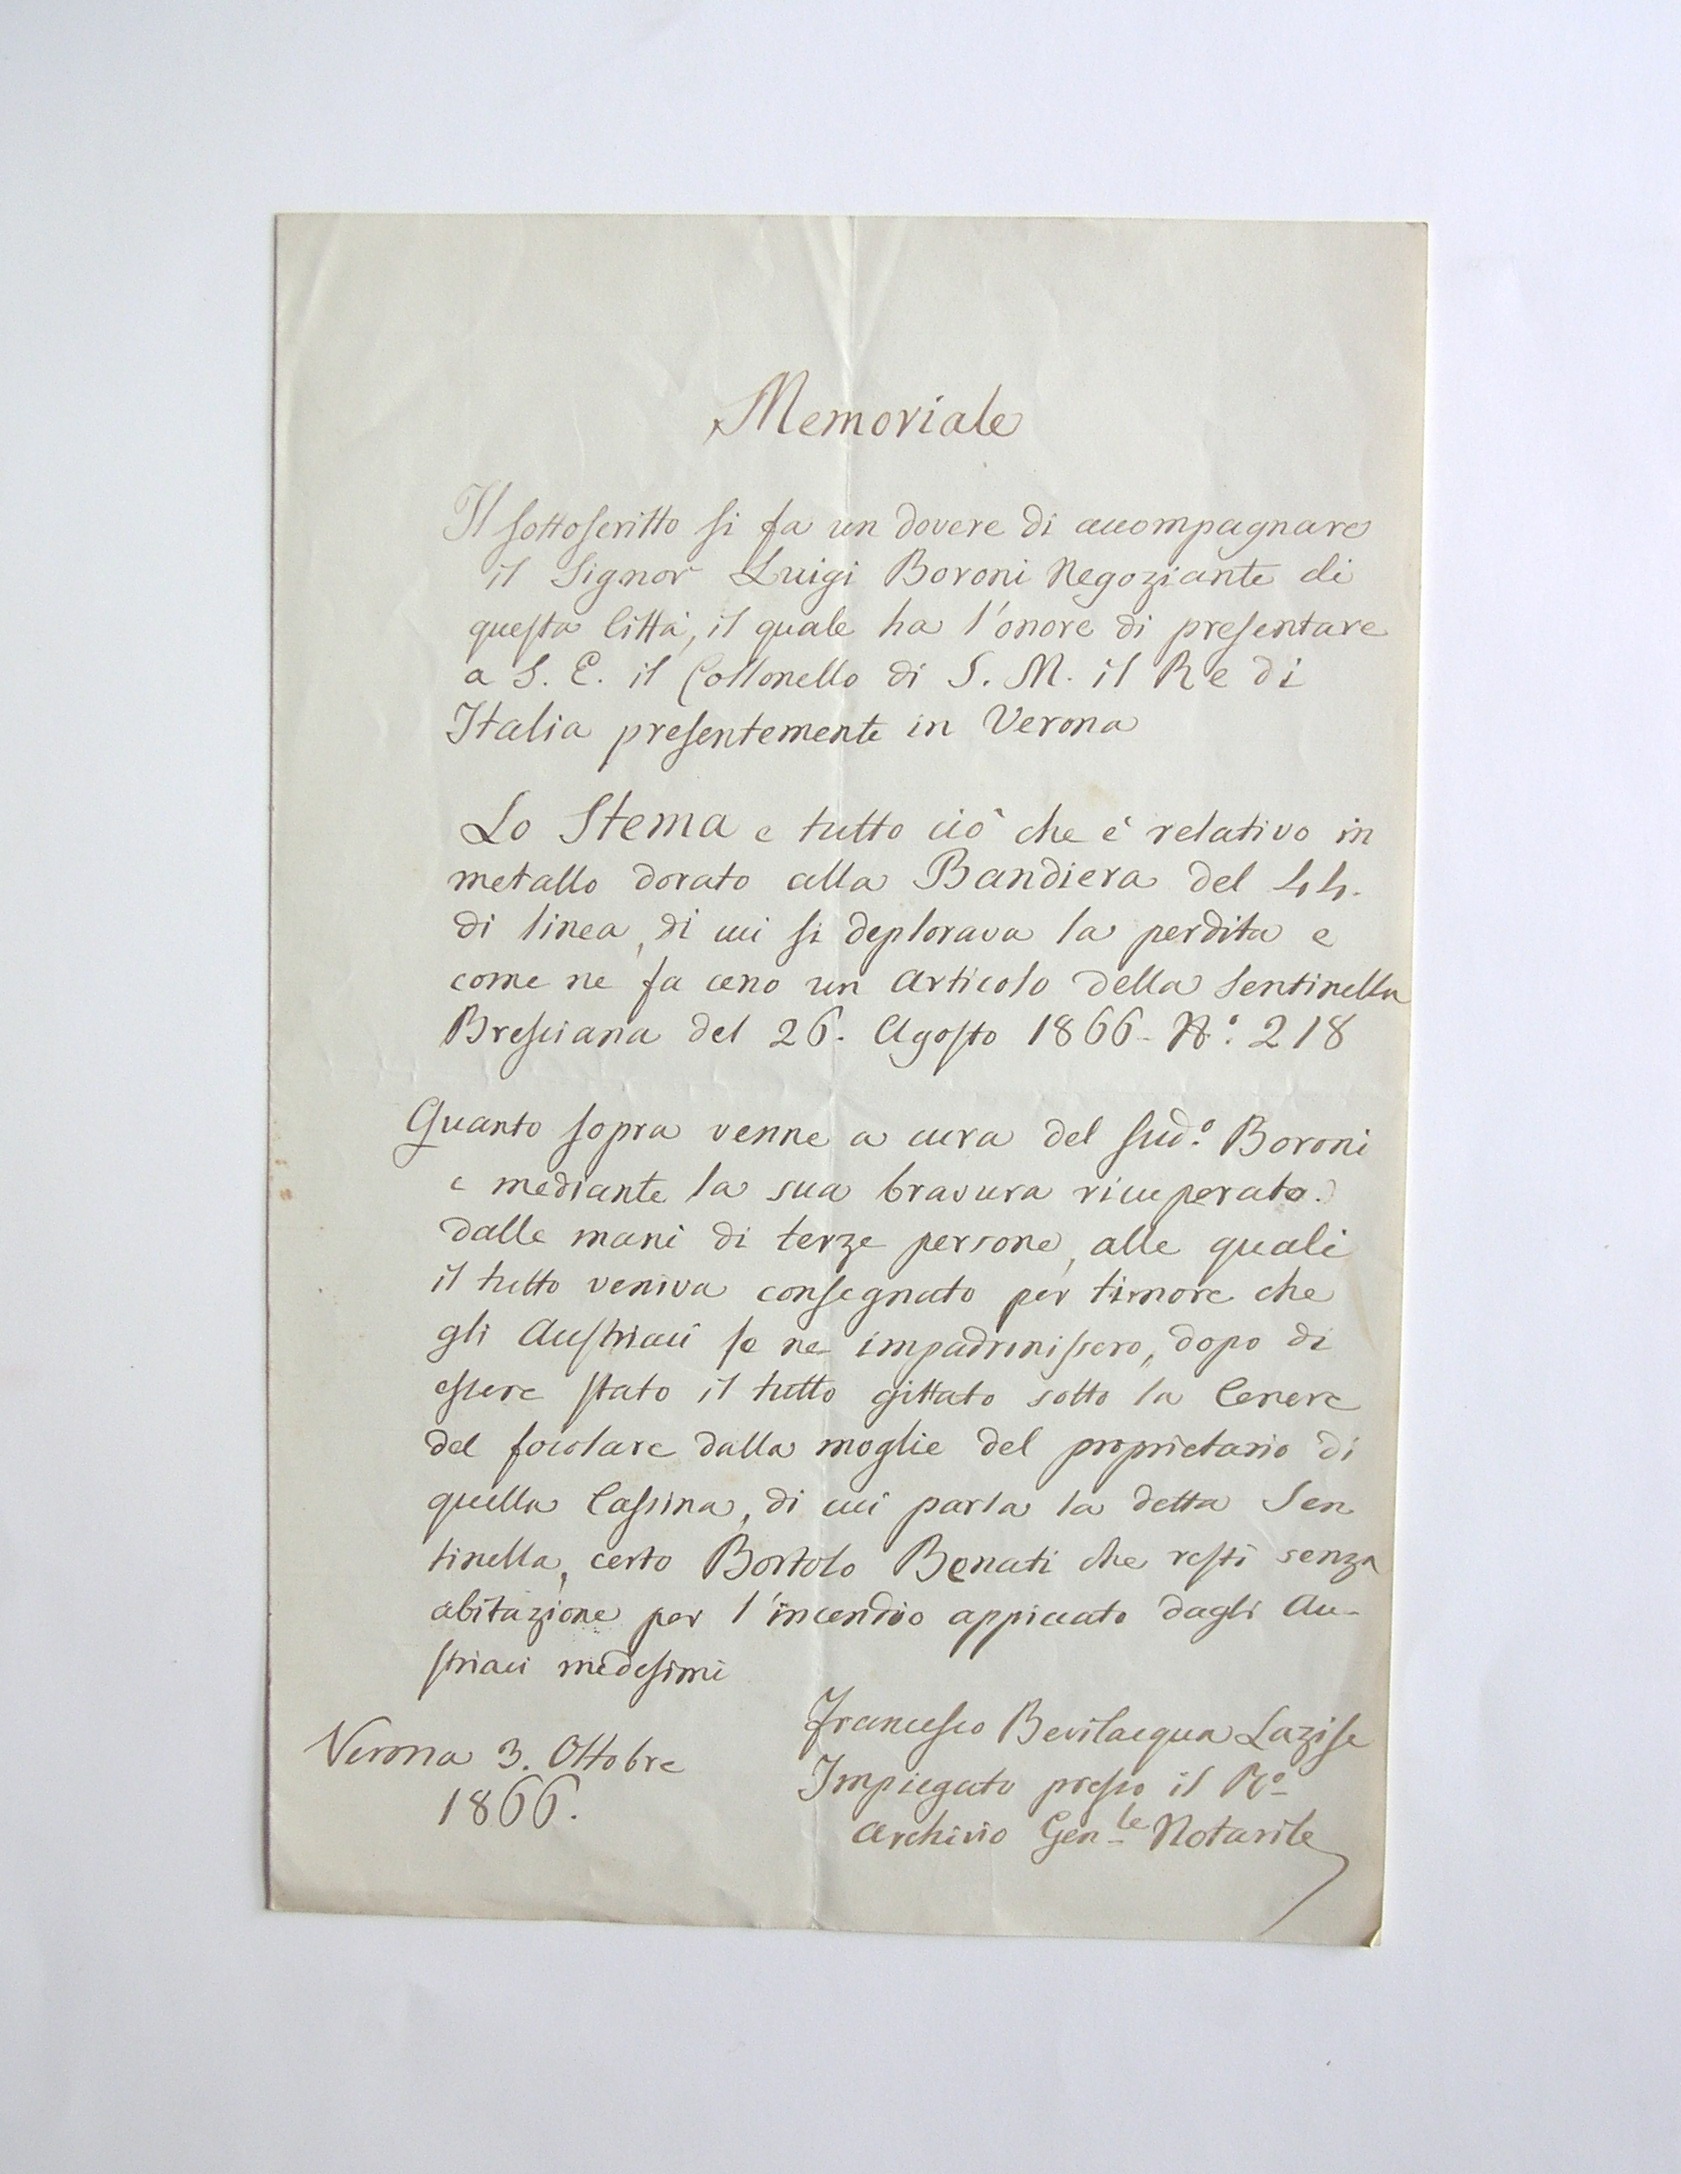 Memoriale
Il sottoscritto si fa un dovere di accompagnare
il Signor Luigi Boroni Negoziante di
questa Città, il quale ha l'onore di presentare
a S. E. il Collonello di S. M. il Re di
Italia presentemente in Verona
Lo Stema e tutto ciò che è relativo in
metallo dorato alla Bandiera del 44.
di linea, di cui si deplorava la perdita e
come ne fa ceno un articolo della Sentinella
Bresciana del 26. Agosto 1866 - N.º 218
Quanto sopra venne a cura del sud.º Boroni
e mediante la sua bravura ricuperato.
dalle mani di terze persone, alle quali
il tutto veniva consegnato per timore che
gli Austriaci se ne impadronissero, dopo di
essere stato il tutto gittato sotto la Cenere
del focolare dalla moglie del proprietario di
quella Cassina, di cui parla la detta Sen
tinella, certo Bortolo Benati che restò senza
abitazione per l'incendio appiccato dagli Au-
striaci medesimi
Francesco Bevilacqua Lazise
Impiegato presso il R.º
Archivio Gen.le Notarile
Verona 3. Ottobre
1866.